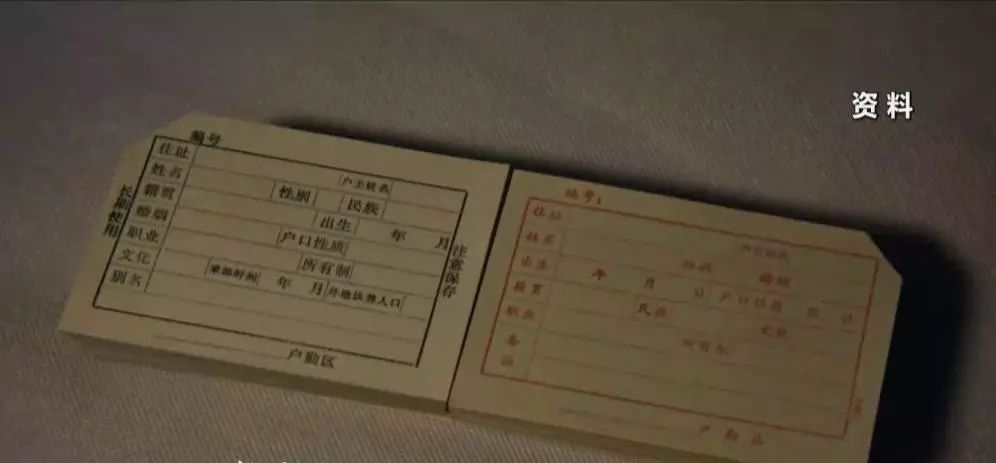 资料
编号
住址
户主姓名
姓名 性别 民族
籍贯 出生 年 月
婚姻 户口性质
职业 所有制
文化 来邯时间 年 月 外地抚养人口
别名
户勤区
长期使用
注意保存
编号：
住址
姓名 婚姻
出生 年 月 日
籍贯 民族 文化
职业
备
注
户勤区